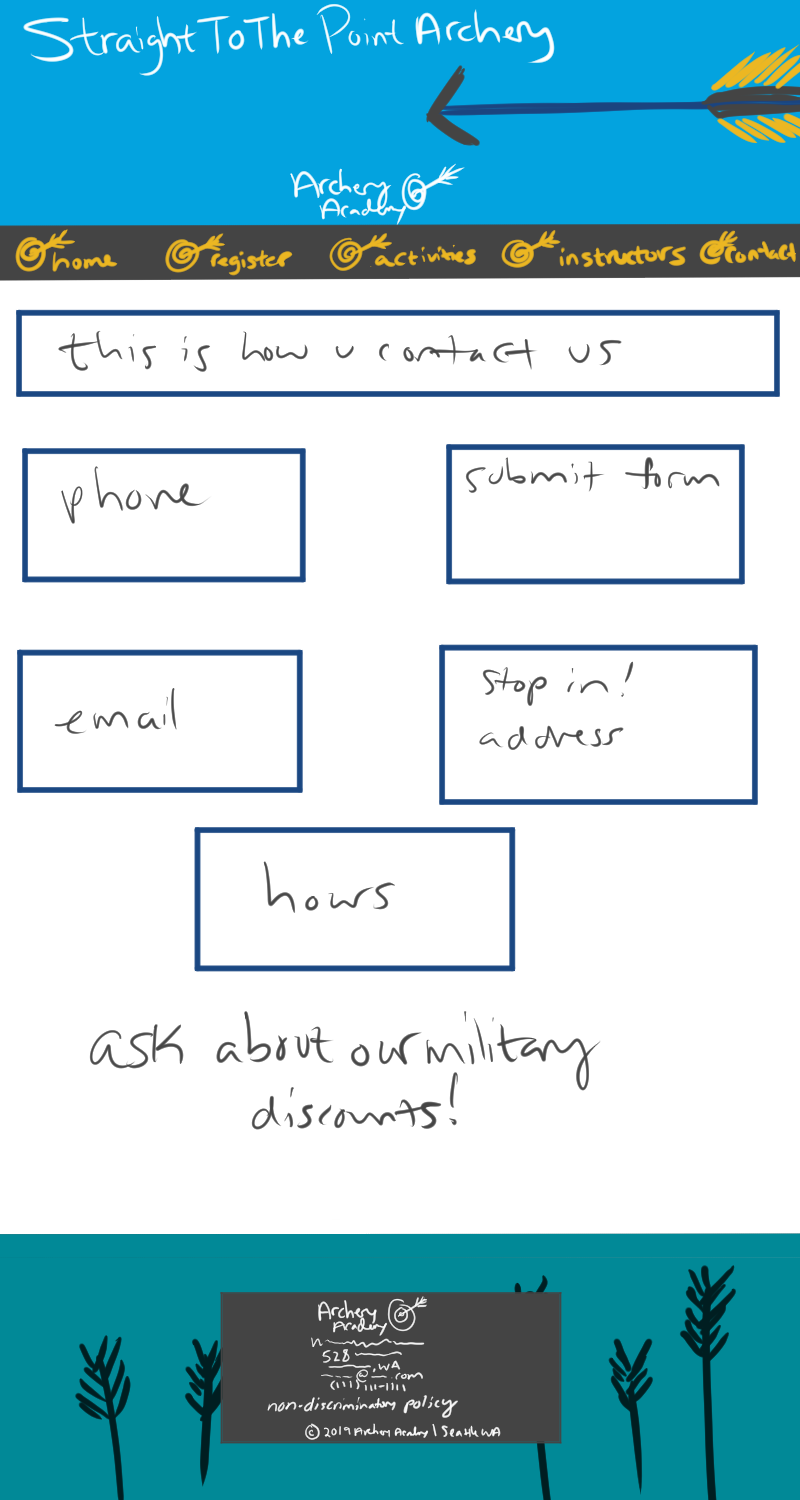 StraightToThe Point Archery
Archery
Academy
home register activities instructors contact
this is how u contact us
phone
submit form
email
stop in!
address
hours
ask about our military
discounts!
Archery
Academy
528
, WA
@ .com
(111) 111-1111
non-discriminatory policy
© 2019 Archery Academy | Seattle WA